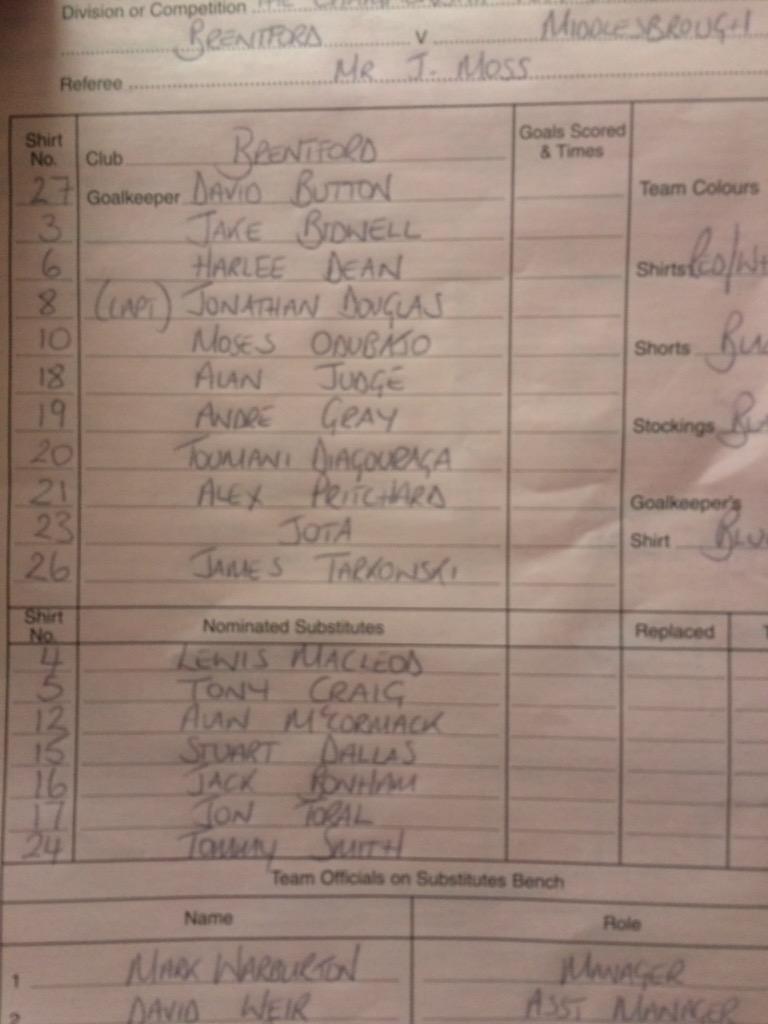 Division or Competition THE CHAMPIONSHIP
BRENTFORD v MIDDLESBROUGH
Referee MR J. MOSS
Shirt No. Club BRENTFORD Goals Scored & Times
27 Goalkeeper DAVID BUTTON Team Colours
3 JAKE BIDWELL
6 HARLEE DEAN Shirts RED/WH
8 (CAPT) JONATHAN DOUGLAS
10 MOSES ODUBAJO Shorts BLA
18 ALAN JUDGE
19 ANDRE GRAY Stockings BLA
20 TOUMANI DIAGOURAGA
21 ALEX PRITCHARD Goalkeeper's
23 JOTA Shirt BLU
26 JAMES TARKOWSKI
Shirt No. Nominated Substitutes Replaced T
4 LEWIS MACLEOD
5 TONY CRAIG
12 ALAN McCORMACK
15 STUART DALLAS
16 JACK BONHAM
17 JON TORAL
24 TOMMY SMITH
Team Officials on Substitutes Bench
Name Role
1 MARK WARBURTON MANAGER
2 DAVID WEIR ASST MANAGER